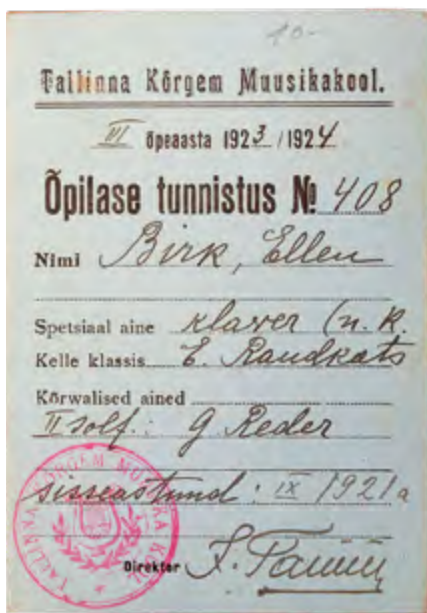 10-
Tallinna Kõrgem Muusikakool.
III õpeaasta 1923/1924
Õpilase tunnistus № 408
Nimi Birk, Ellen
Spetsiaal aine klaver (n. k.
Kelle klassis E. Raudkats
Kõrwalised ained
II solf.: G. Reder
sisseastund: IX 1921 a
TALLINNA KÕRGEM MUUSIKA KOOL
Direktor